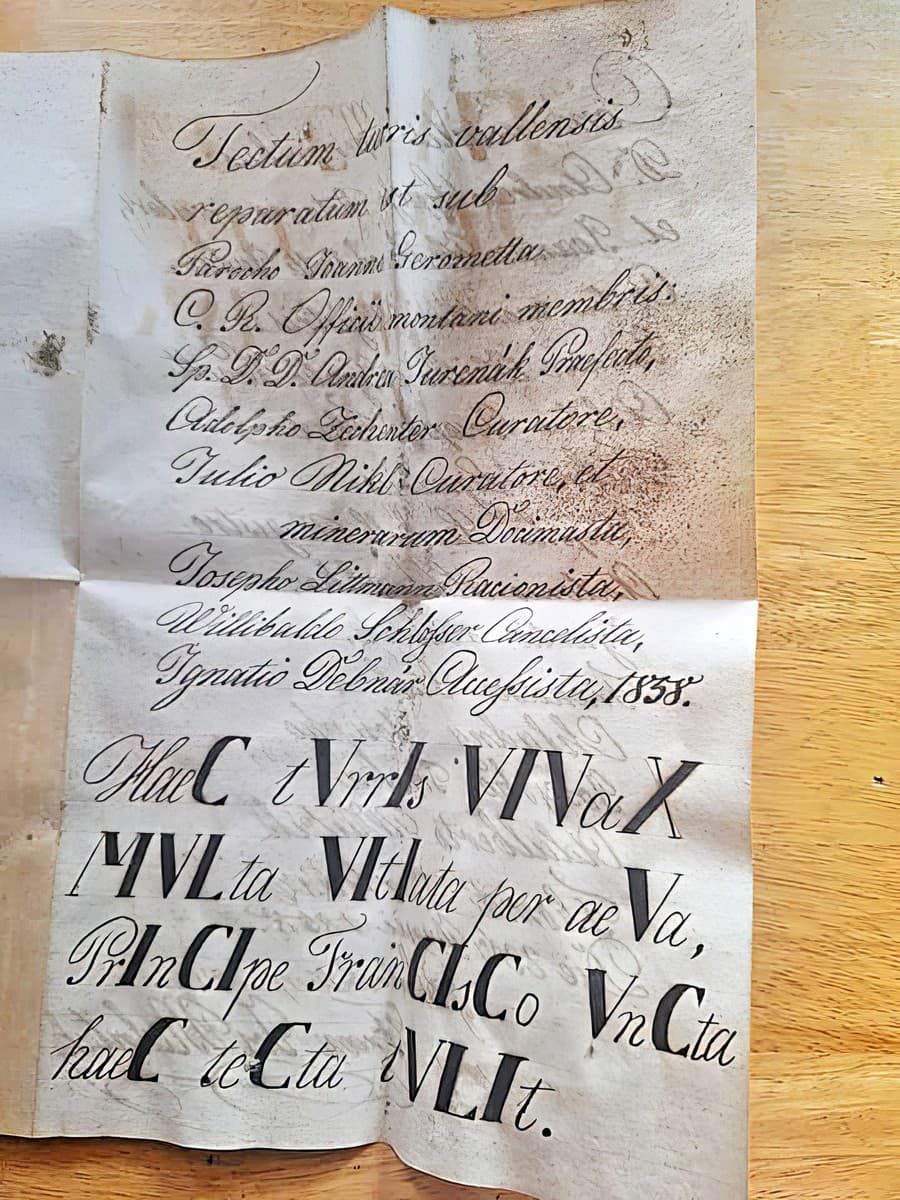 Tectum turris vallensis
reparatum est sub
Parocho Joanne Gerometta,
C. R. Officii montani membris:
Sp. D. D. Andrea Jurenák Praefecto,
Adolpho Zechenter Curatore,
Julio Mikl Curatore, et
minerarum Docimasta,
Josepho Littmann Racionista,
Willibaldo Schlösser Cancelista,
Ignatio Debnár Accessista, 1858.
HaeC tVrrIs VIVaX
MVLta VItIata per aeVa,
PrInCIpe FranCIsCo VnCta
haeC teCta tVLIt.